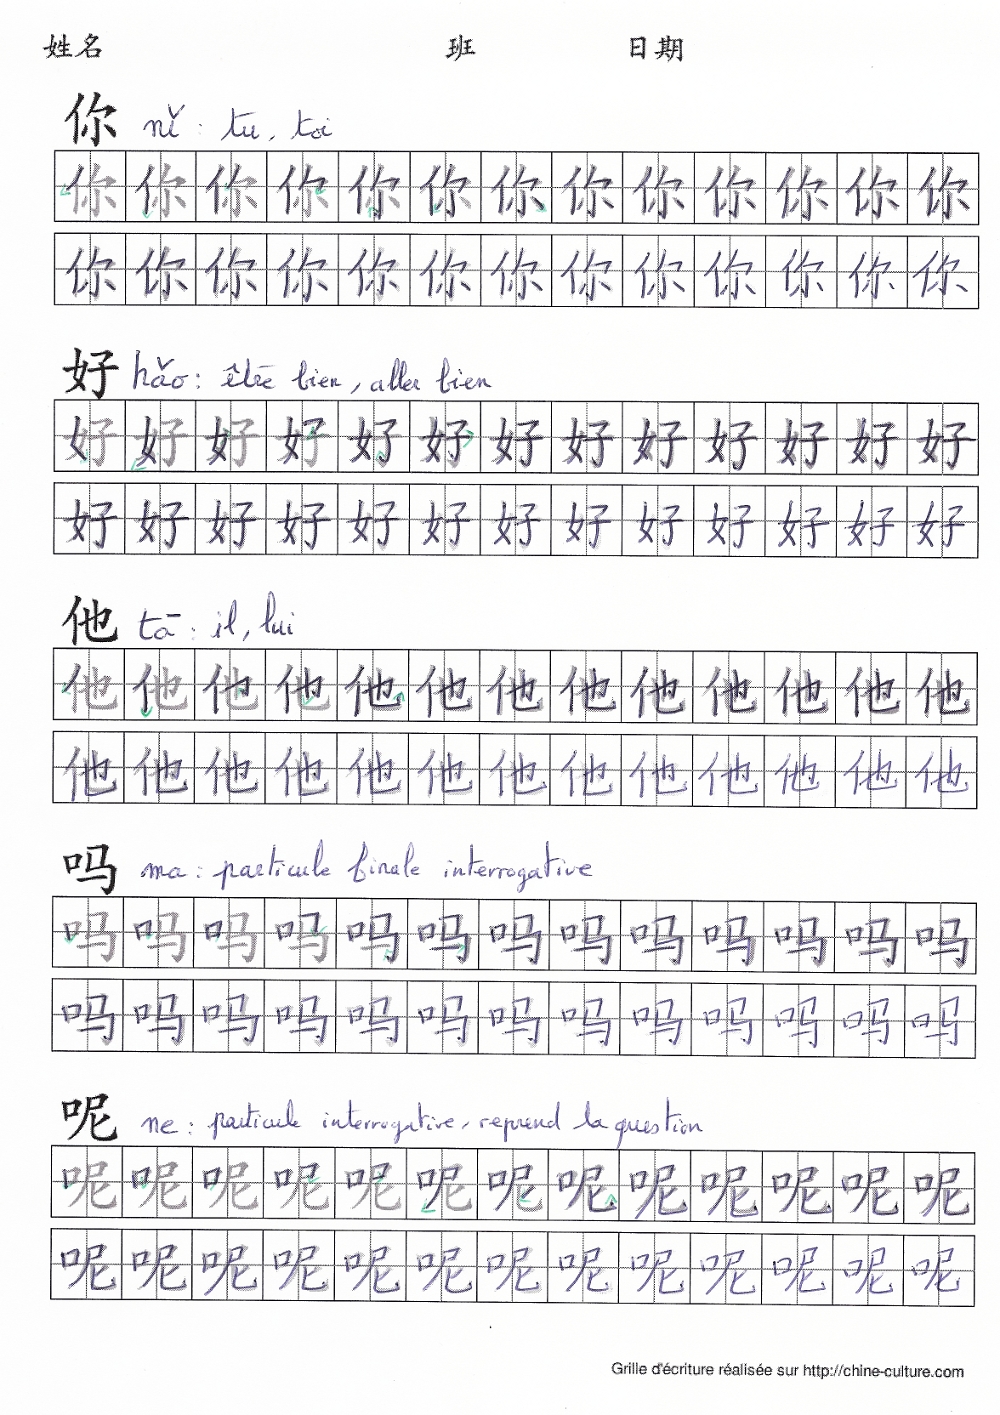 姓名 班 日期
你 nǐ : tu, toi
你你你你你你你你你你你你你
你你你你你你你你你你你你你
好 hǎo : être bien, aller bien
好好好好好好好好好好好好好
好好好好好好好好好好好好好
他 tā : il, lui
他他他他他他他他他他他他他
他他他他他他他他他他他他他
吗 ma : particule finale interrogative
吗吗吗吗吗吗吗吗吗吗吗吗吗
吗吗吗吗吗吗吗吗吗吗吗吗吗
呢 ne : particule interrogative, reprend la question
呢呢呢呢呢呢呢呢呢呢呢呢呢
呢呢呢呢呢呢呢呢呢呢呢呢呢
Grille d'écriture réalisée sur http://chine-culture.com